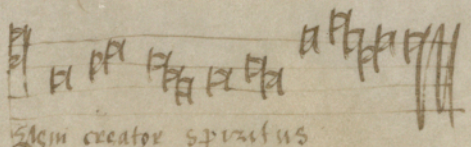 Veni creator spiritus